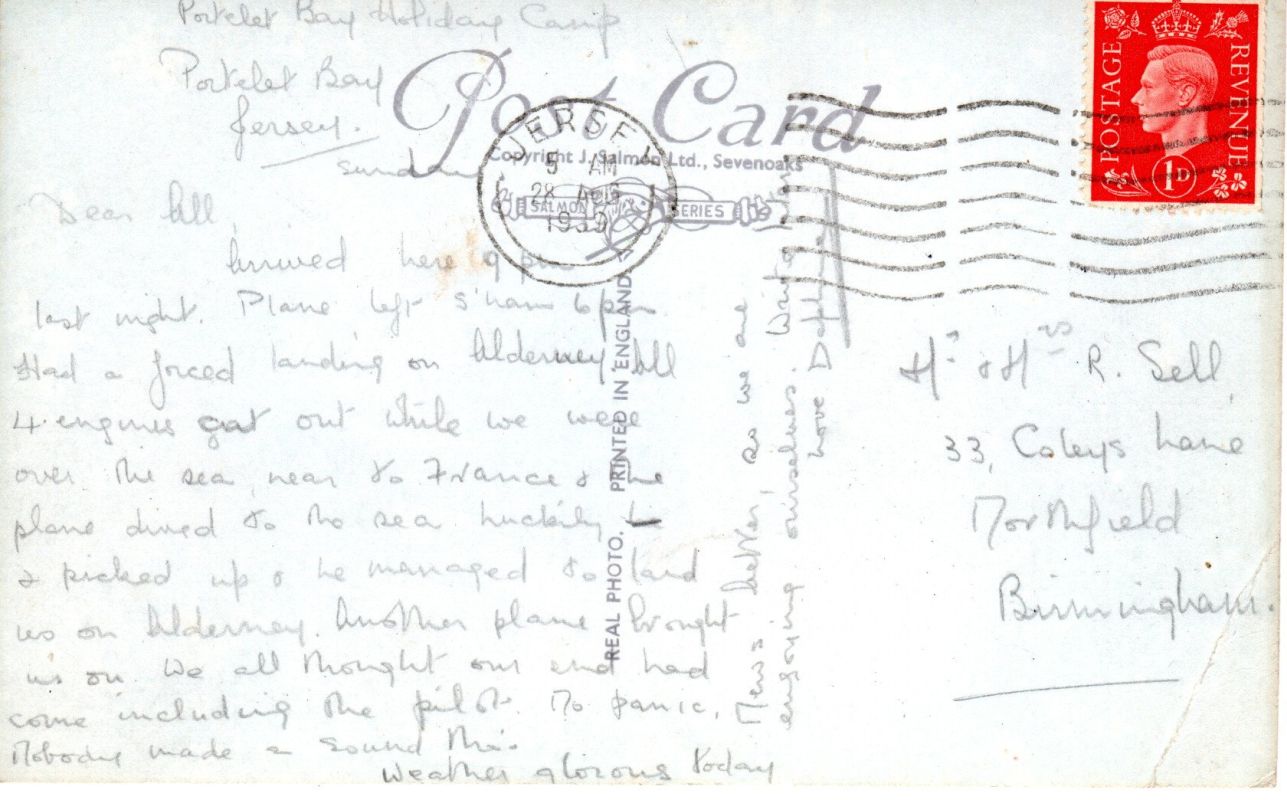 Portelet Bay Holiday Camp
Portelet Bay
Jersey.
Sunday
Post Card
Copyright J. Salmon Ltd., Sevenoaks
SALMON SERIES
JERSEY
5 AM
28 AUG
1939
POSTAGE REVENUE
1D
Dear All,
Arrived here 9 pm
last night. Plane left S'ham 6 pm.
Had a forced landing on Alderney All
4 engines cut out while we were
over the sea, near to France & the
plane dived to the sea. Luckily
& picked up & he managed to land
us on Alderney. Another plane brought
us on. We all thought our end had
come including the pilot. No panic,
Nobody made a sound tho'.
Weather glorous today
REAL PHOTO. PRINTED IN ENGLAND
News better, so we are
enjoying ourselves.
Love
Mr & Mrs R. Sell,
33, Coleys Lane
Northfield
Birmingham.